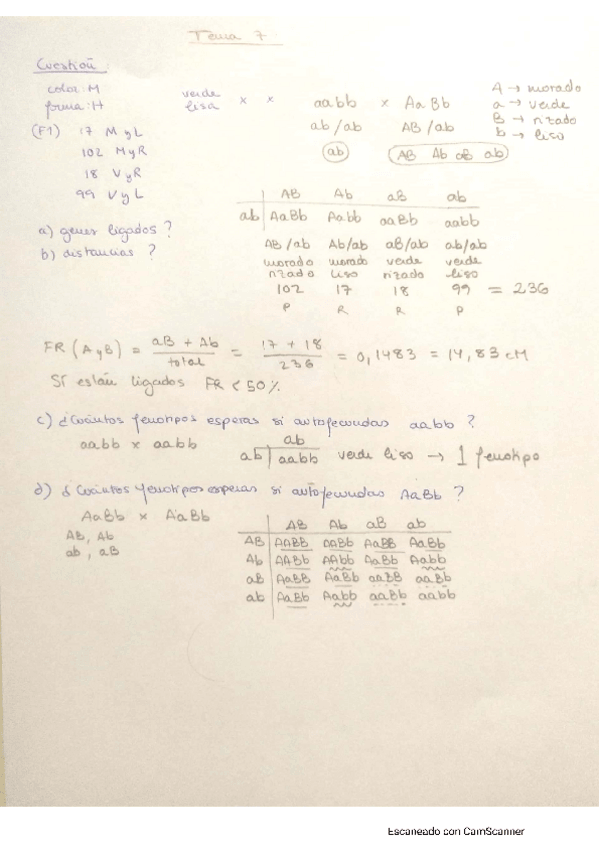 Tema 7
Cuestión
color: M
forma: H
verde lisa x x aabb x AaBb
ab/ab AB/ab
ab AB Ab aB ab
A → morado
a → verde
B → rizado
b → liso
(F1) 17 M y L
102 M y R
18 V y R
99 V y L
a) genes ligados?
b) distancias?
AB Ab aB ab
ab AaBb Aabb aaBb aabb
AB/ab Ab/ab aB/ab ab/ab
morado morado verde verde
rizado liso rizado liso
102 17 18 99 = 236
P R R P
FR (A y B) = aB + Ab / total = 17 + 18 / 236 = 0,1483 = 14,83 cM
SÍ están ligados FR < 50%
c) ¿Cuántos fenotipos esperas si autofecundas aabb?
aabb x aabb
ab
ab aabb verde liso → 1 fenotipo
d) ¿Cuántos fenotipos esperas si autofecundas AaBb?
AaBb x AaBb
AB, Ab
ab, aB
AB Ab aB ab
AB AABB AABb AaBB AaBb
Ab AABb AAbb AaBb Aabb
aB AaBB AaBb aaBB aaBb
ab AaBb Aabb aaBb aabb
Escaneado con CamScanner